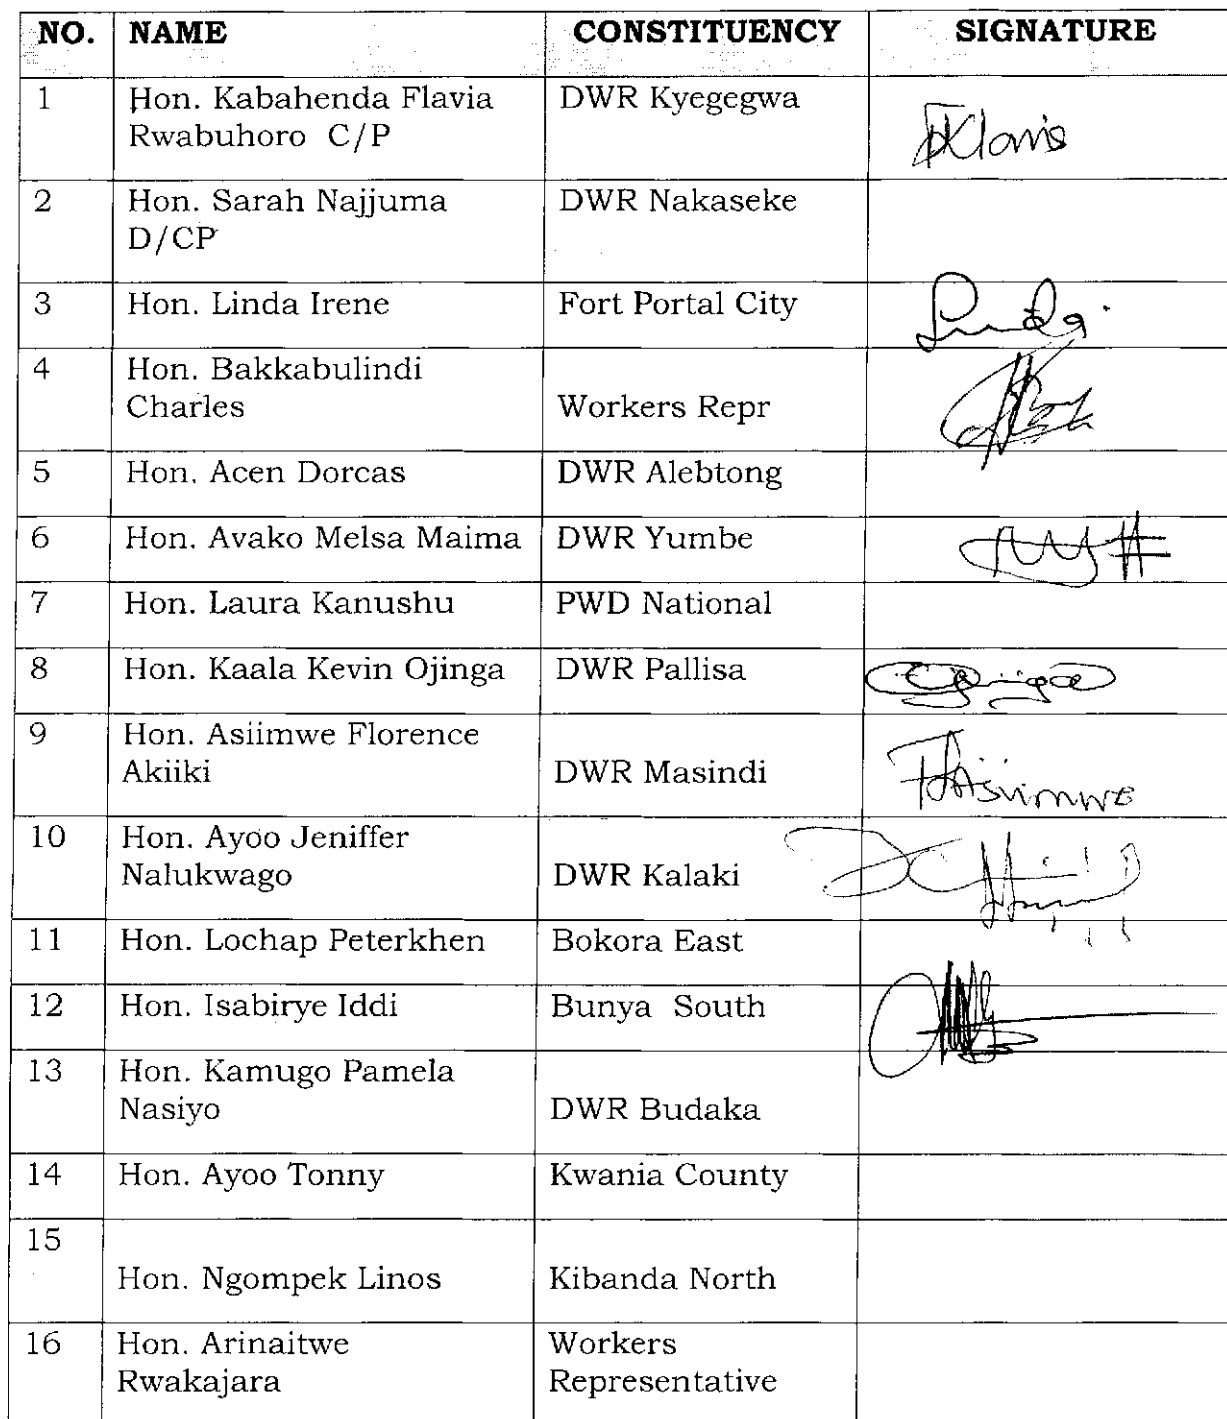 NO. NAME CONSTITUENCY SIGNATURE
1 Hon. Kabahenda Flavia DWR Kyegegwa
Rwabuhoro C/P
2 Hon. Sarah Najjuma DWR Nakaseke
D/CP
3 Hon. Linda Irene Fort Portal City
4 Hon. Bakkabulindi
Charles Workers Repr
5 Hon. Acen Dorcas DWR Alebtong
6 Hon. Avako Melsa Maima DWR Yumbe
7 Hon. Laura Kanushu PWD National
8 Hon. Kaala Kevin Ojinga DWR Pallisa
9 Hon. Asiimwe Florence
Akiiki DWR Masindi
10 Hon. Ayoo Jeniffer
Nalukwago DWR Kalaki
11 Hon. Lochap Peterkhen Bokora East
12 Hon. Isabirye Iddi Bunya South
13 Hon. Kamugo Pamela
Nasiyo DWR Budaka
14 Hon. Ayoo Tonny Kwania County
15
Hon. Ngompek Linos Kibanda North
16 Hon. Arinaitwe Workers
Rwakajara Representative